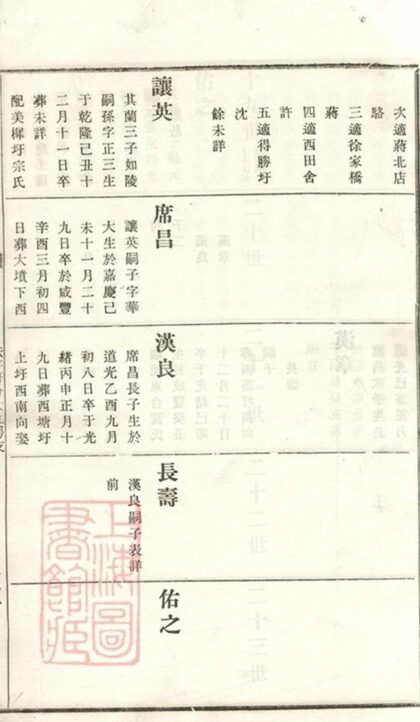 次適蔣北店
駱
三適徐家橋
蔣
四適西田舍
許
五適得勝圩
沈
餘未詳
讓英
其蘭三子如陵
嗣孫字正三生
于乾隆己丑十
二月十一日卒
葬未詳
配美圩宗氏
席昌
讓英嗣子字華
大生於嘉慶己
未十一月二十
九日卒於咸豐
辛酉三月初四
日葬大墳下西
漢良
席昌長子生於
道光乙酉九月
初八日卒于光
緒丙申正月十
九日葬西塘圩
上圩西南向娶
長壽
漢良嗣子表詳
前
佑之
上海圖
書館藏